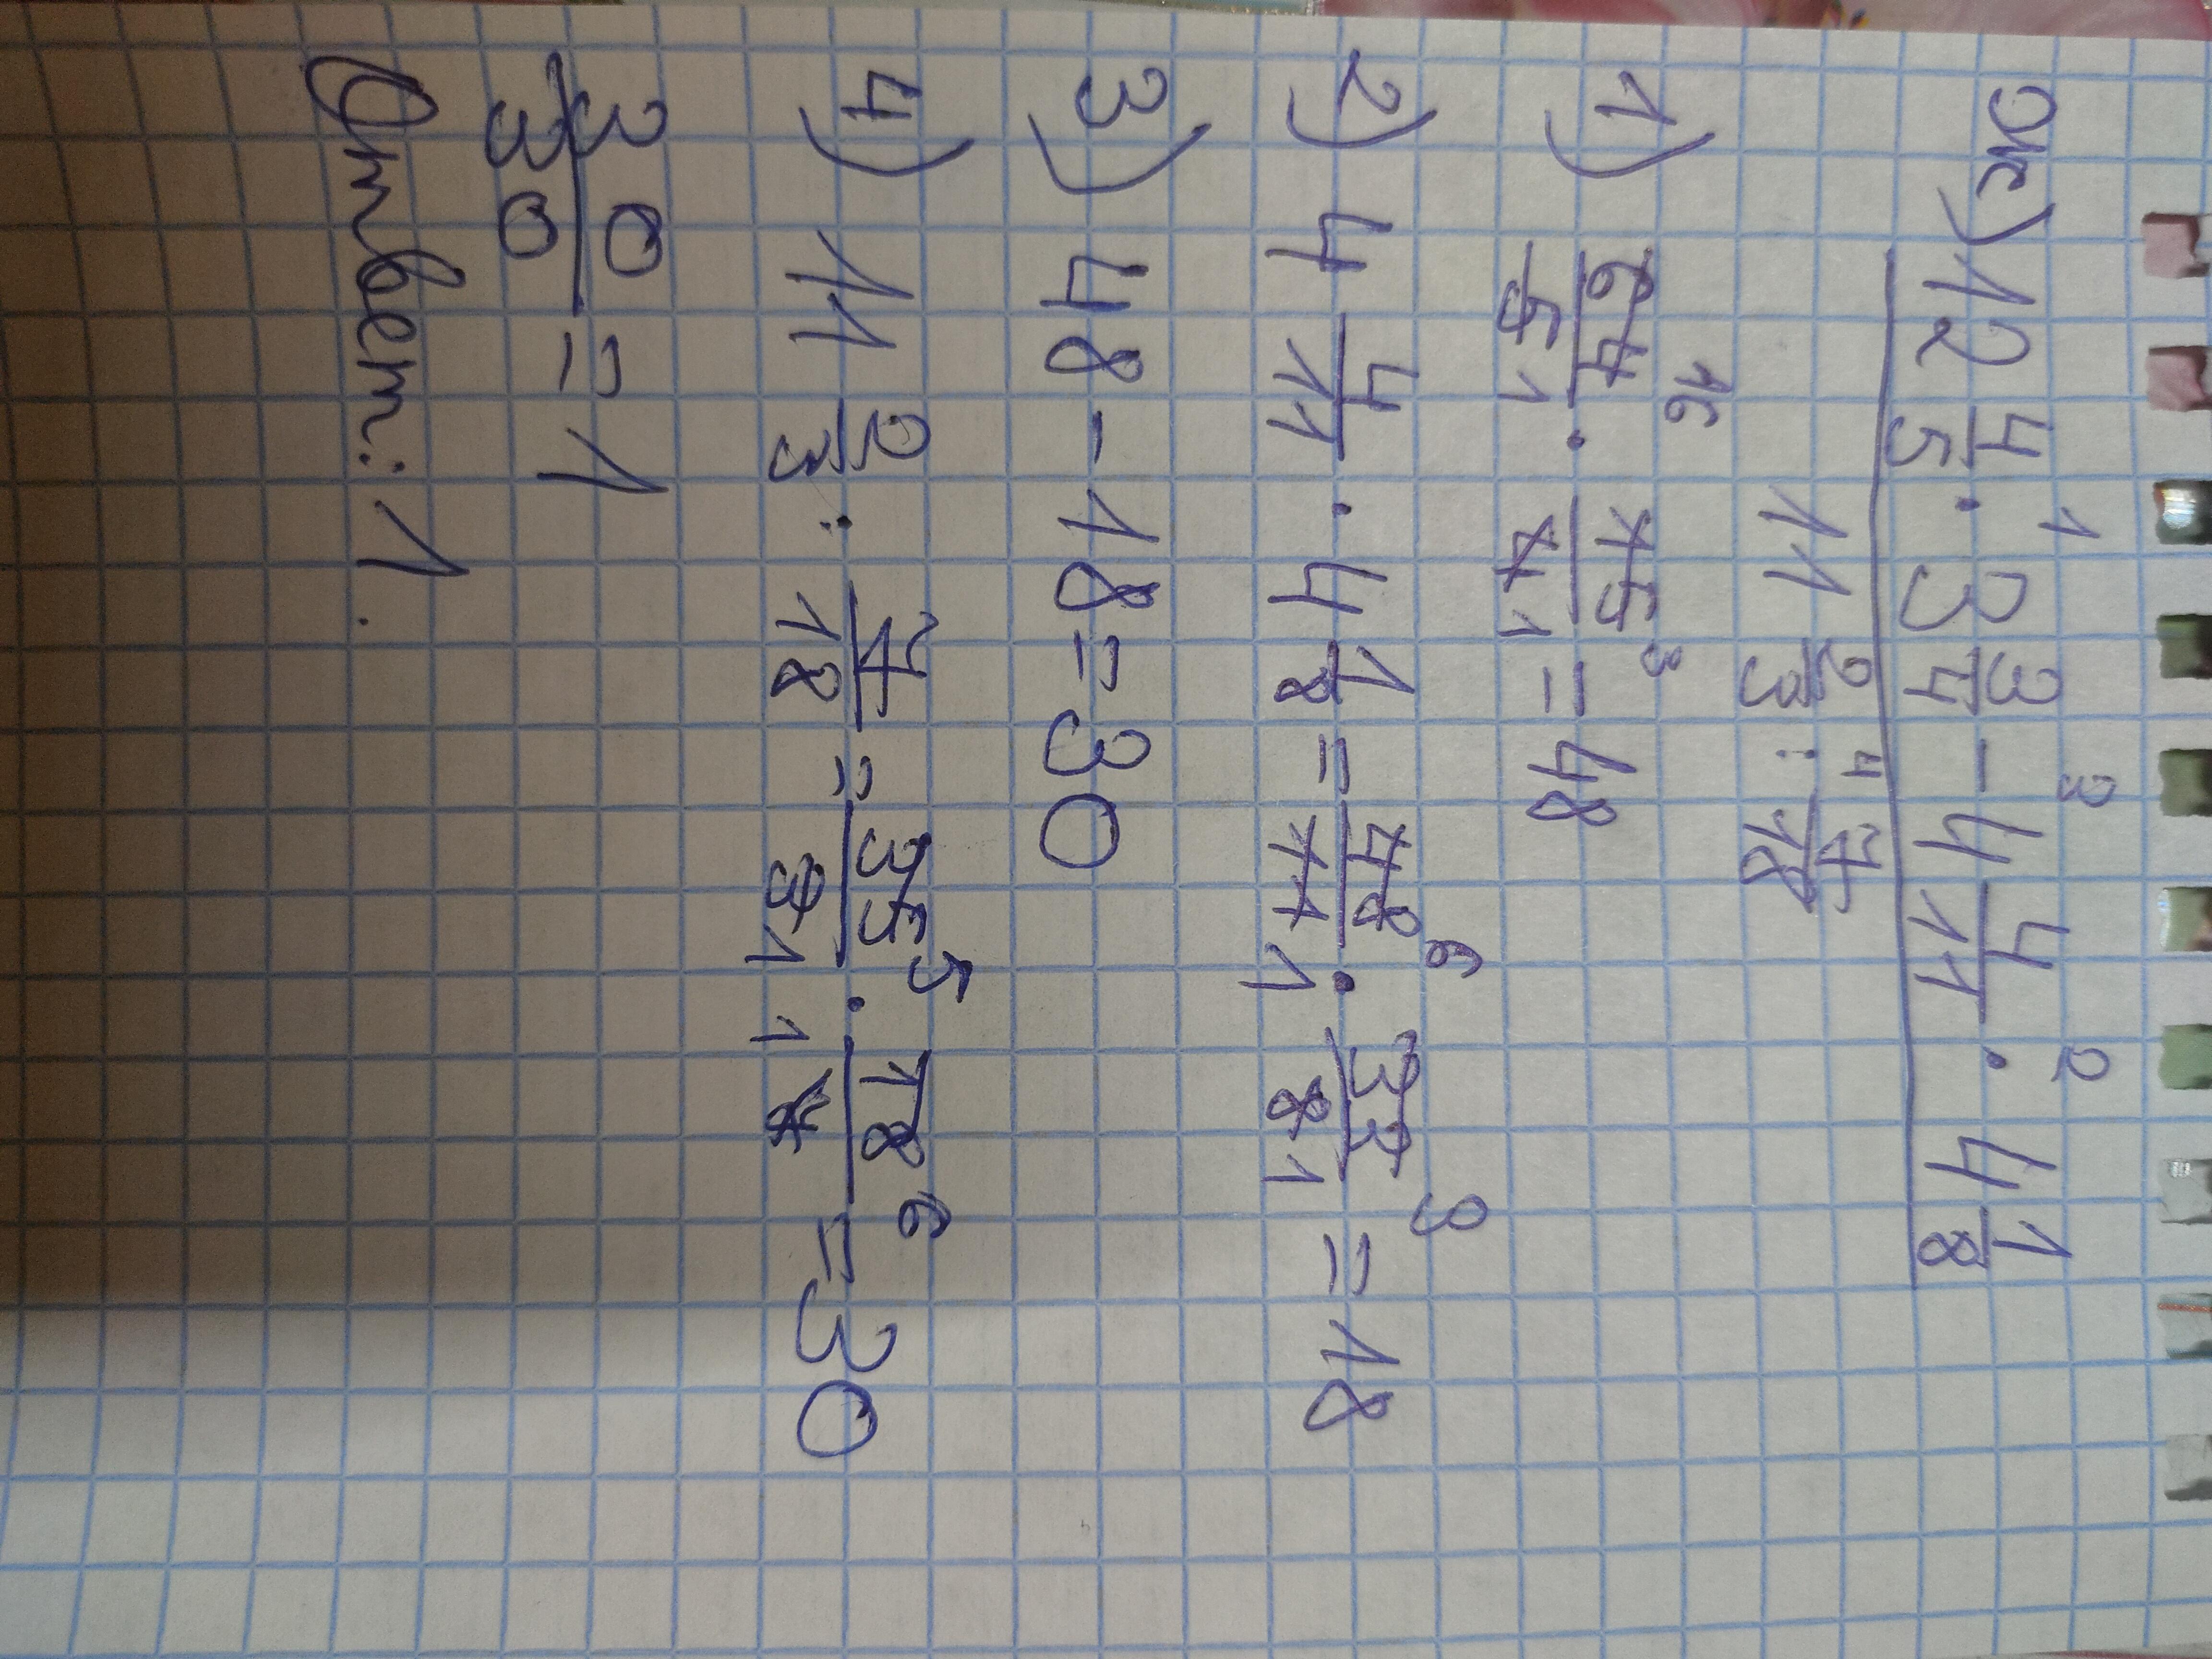 ж) 12 4/5 · 3 3/4 - 4 4/11 · 4 1/8
1 3 2
11 2/3 : 7/18
4
1) 64/5 · 15/4 = 48
16 3
1 1
2) 4 4/11 · 4 1/8 = 48/11 · 33/8 = 18
6 3
1 1
3) 48 - 18 = 30
4) 11 2/3 : 7/18 = 35/3 · 18/7 = 30
5 6
1 1
30/30 = 1
Ответ: 1.